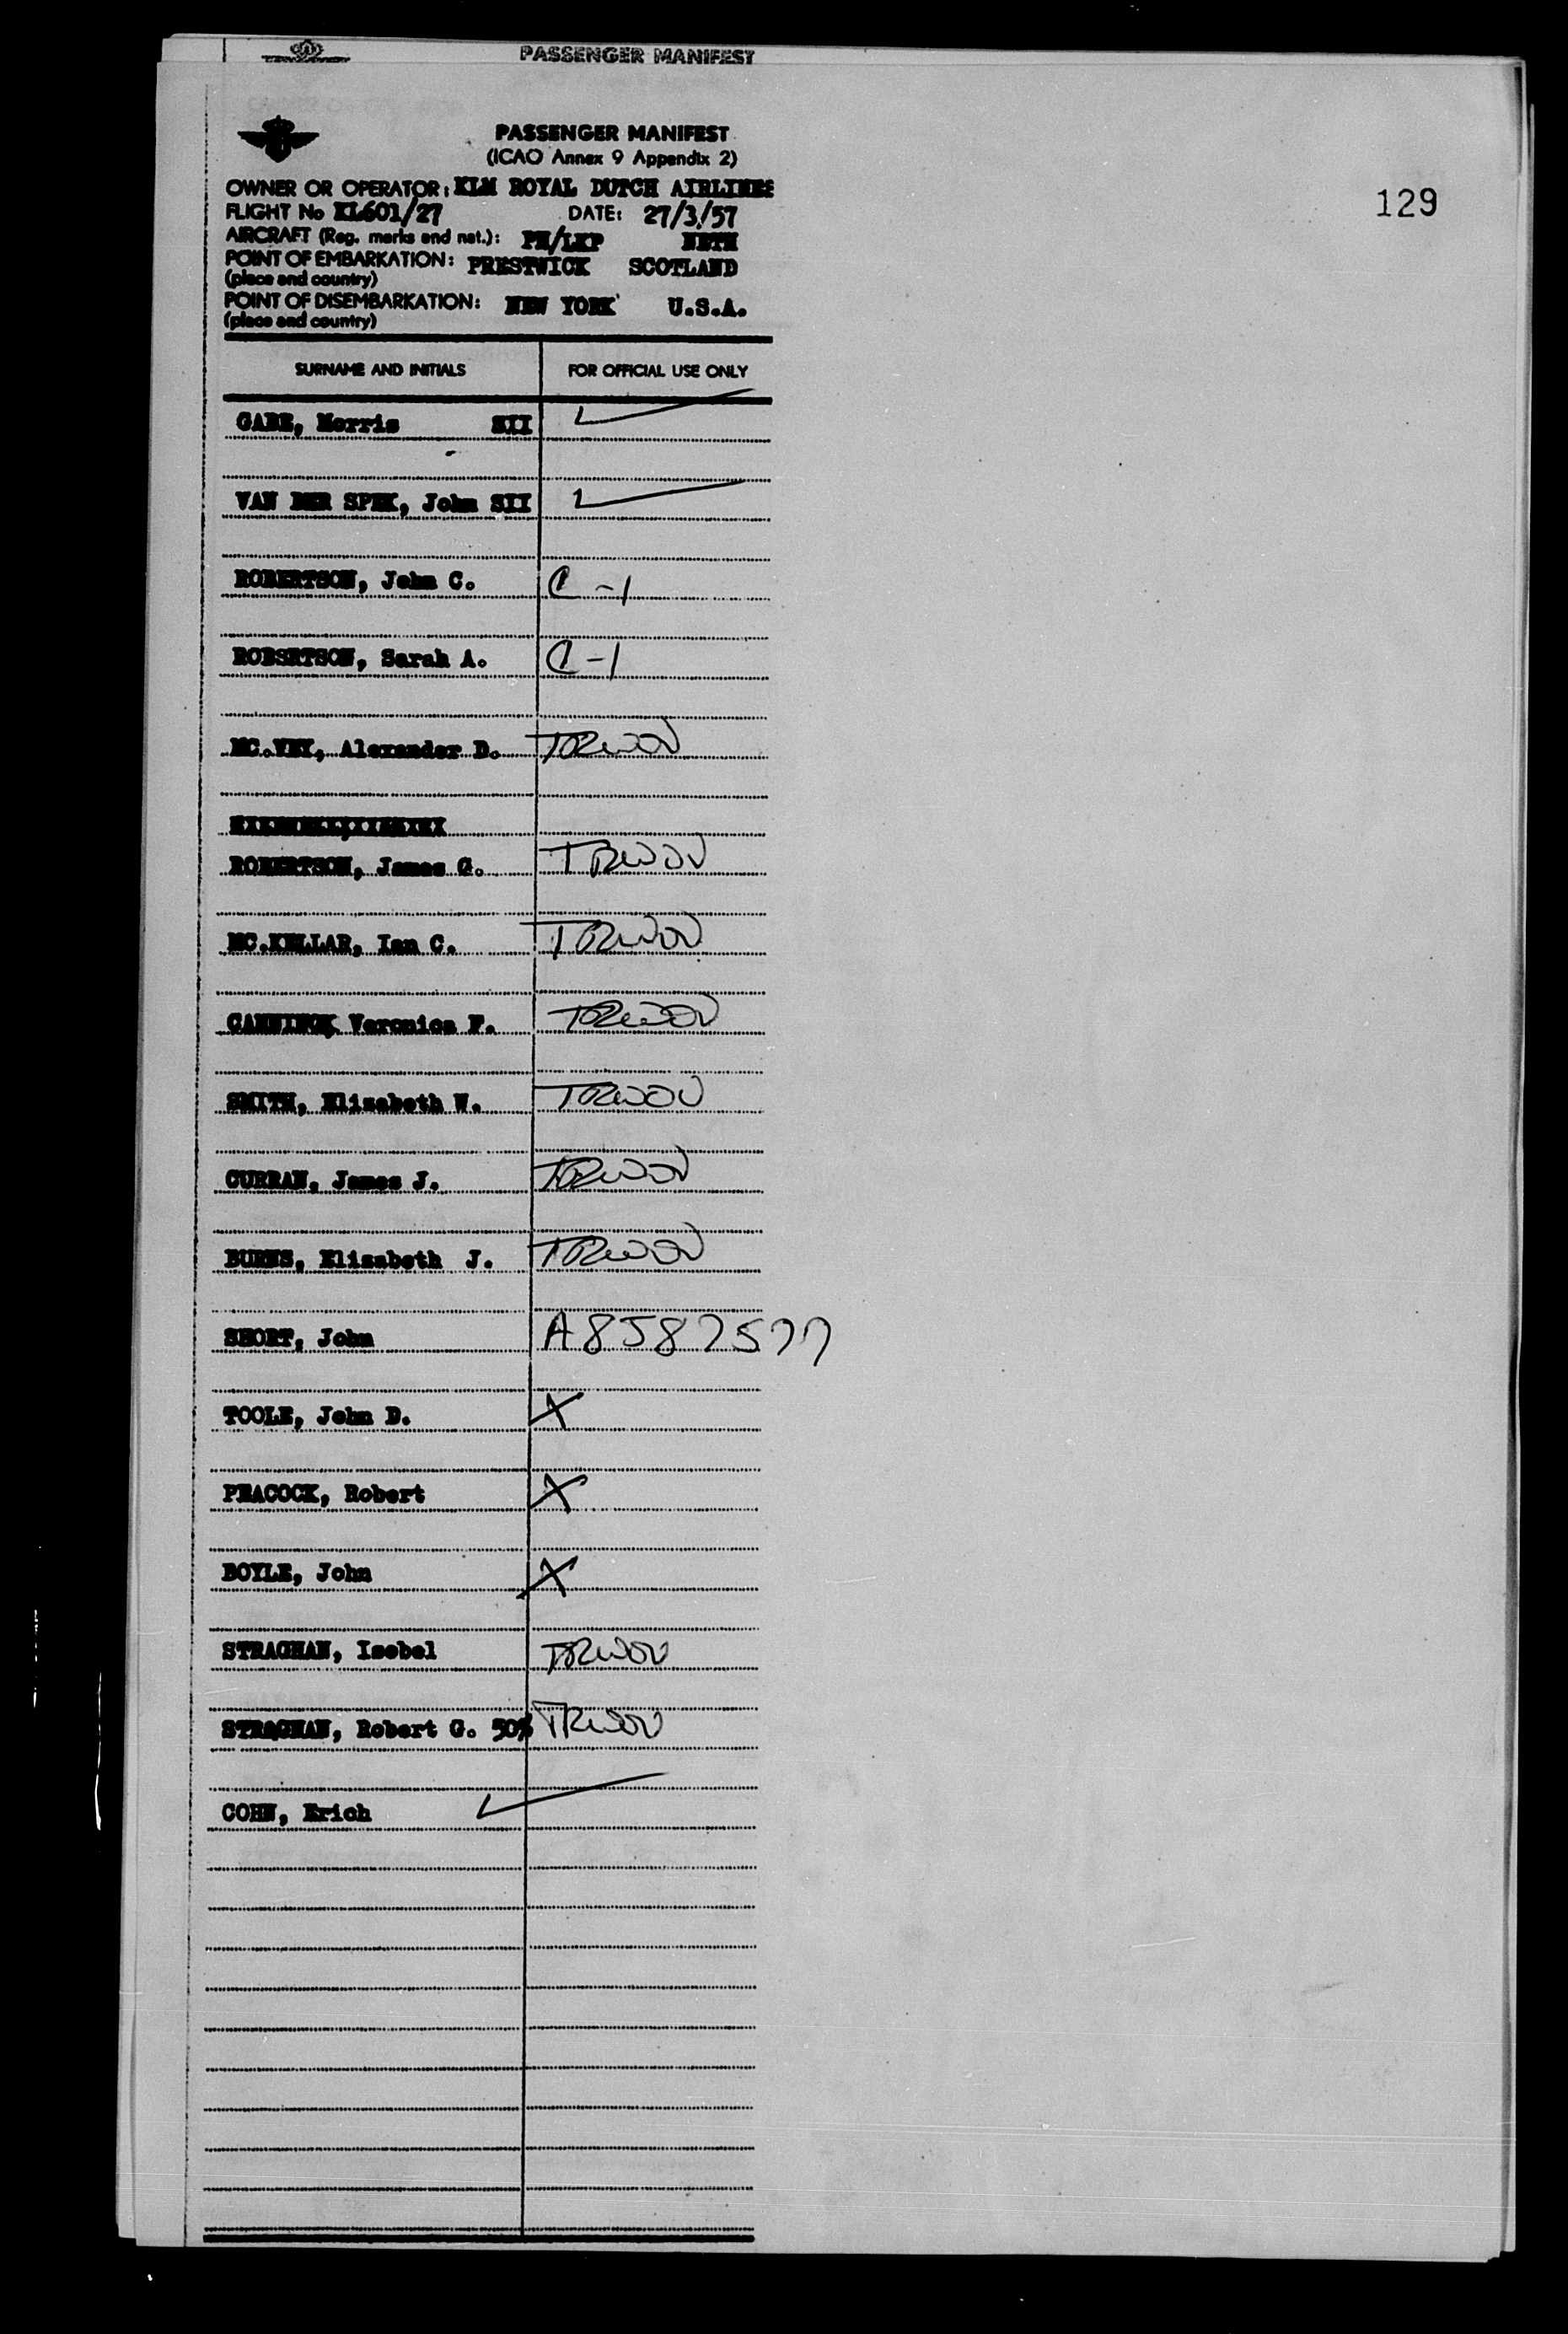 PASSENGER MANIFEST
PASSENGER MANIFEST
(ICAO Annex 9 Appendix 2)
129
OWNER OR OPERATOR: KLM ROYAL DUTCH AIRLINES
FLIGHT No KL601/27 DATE: 27/3/57
AIRCRAFT (Reg. marks and nat.): PH/LKP NETH
POINT OF EMBARKATION: PRESTWICK SCOTLAND
(place and country)
POINT OF DISEMBARKATION: NEW YORK U.S.A.
(place and country)
SURNAME AND INITIALS FOR OFFICIAL USE ONLY
GABE, Morris SII
VAN DER SPEK, John SII
ROBERTSON, John C. C-1
ROBSRTSON, Sarah A. C-1
MC.VEY, Alexander D.
ROBERTSON, James G.
MC.KELLAR, Ian C.
Veronica F.
SMITH, Elizabeth W.
CURRAN, James J.
BURNS, Elizabeth J.
SHORT, John A8587577
TOOLE, John D. X
PEACOCK, Robert X
BOYLE, John X
STRAGHAN, Isobel
STRAGHAN, Robert G. 50%
COHN, Erich